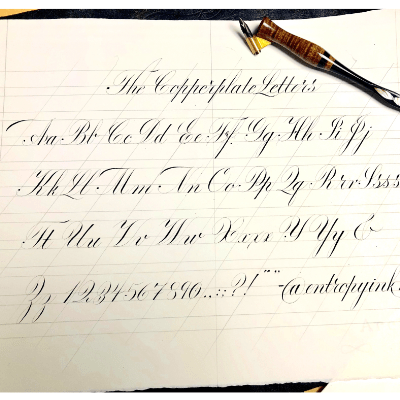 The Copperplate Letters
Aa Bb Cc Dd Ee Ff Gg Hh Ii Jj
Kk Ll Mm Nn Oo Pp Qq Rrr Ssss
Tt Uu Vv Ww Xxxx Y Yy Z
1234567890..::?! "" @entropyink